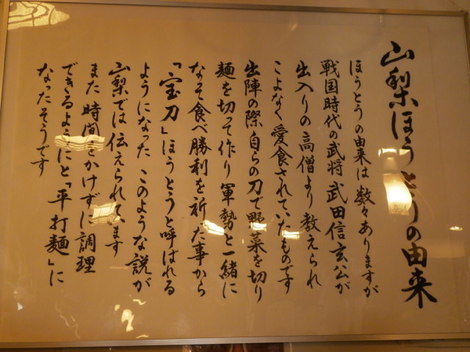 山梨ほうとうの由来
ほうとうの由来は数々ありますが
戦国時代の武将武田信玄公が
出入りの高僧より教えられ
こよなく愛食されていたものです
出陣の際自らの刀で野菜を切り
麺を切って作り軍勢と一緒に
なって食べ勝利を祈た事から
「宝刀」ほうとうと呼ばれる
ようになったこのような説が
山梨では伝えられてます
また時間をかけずに調理
できるようにと「平打麺」に
なったそうです